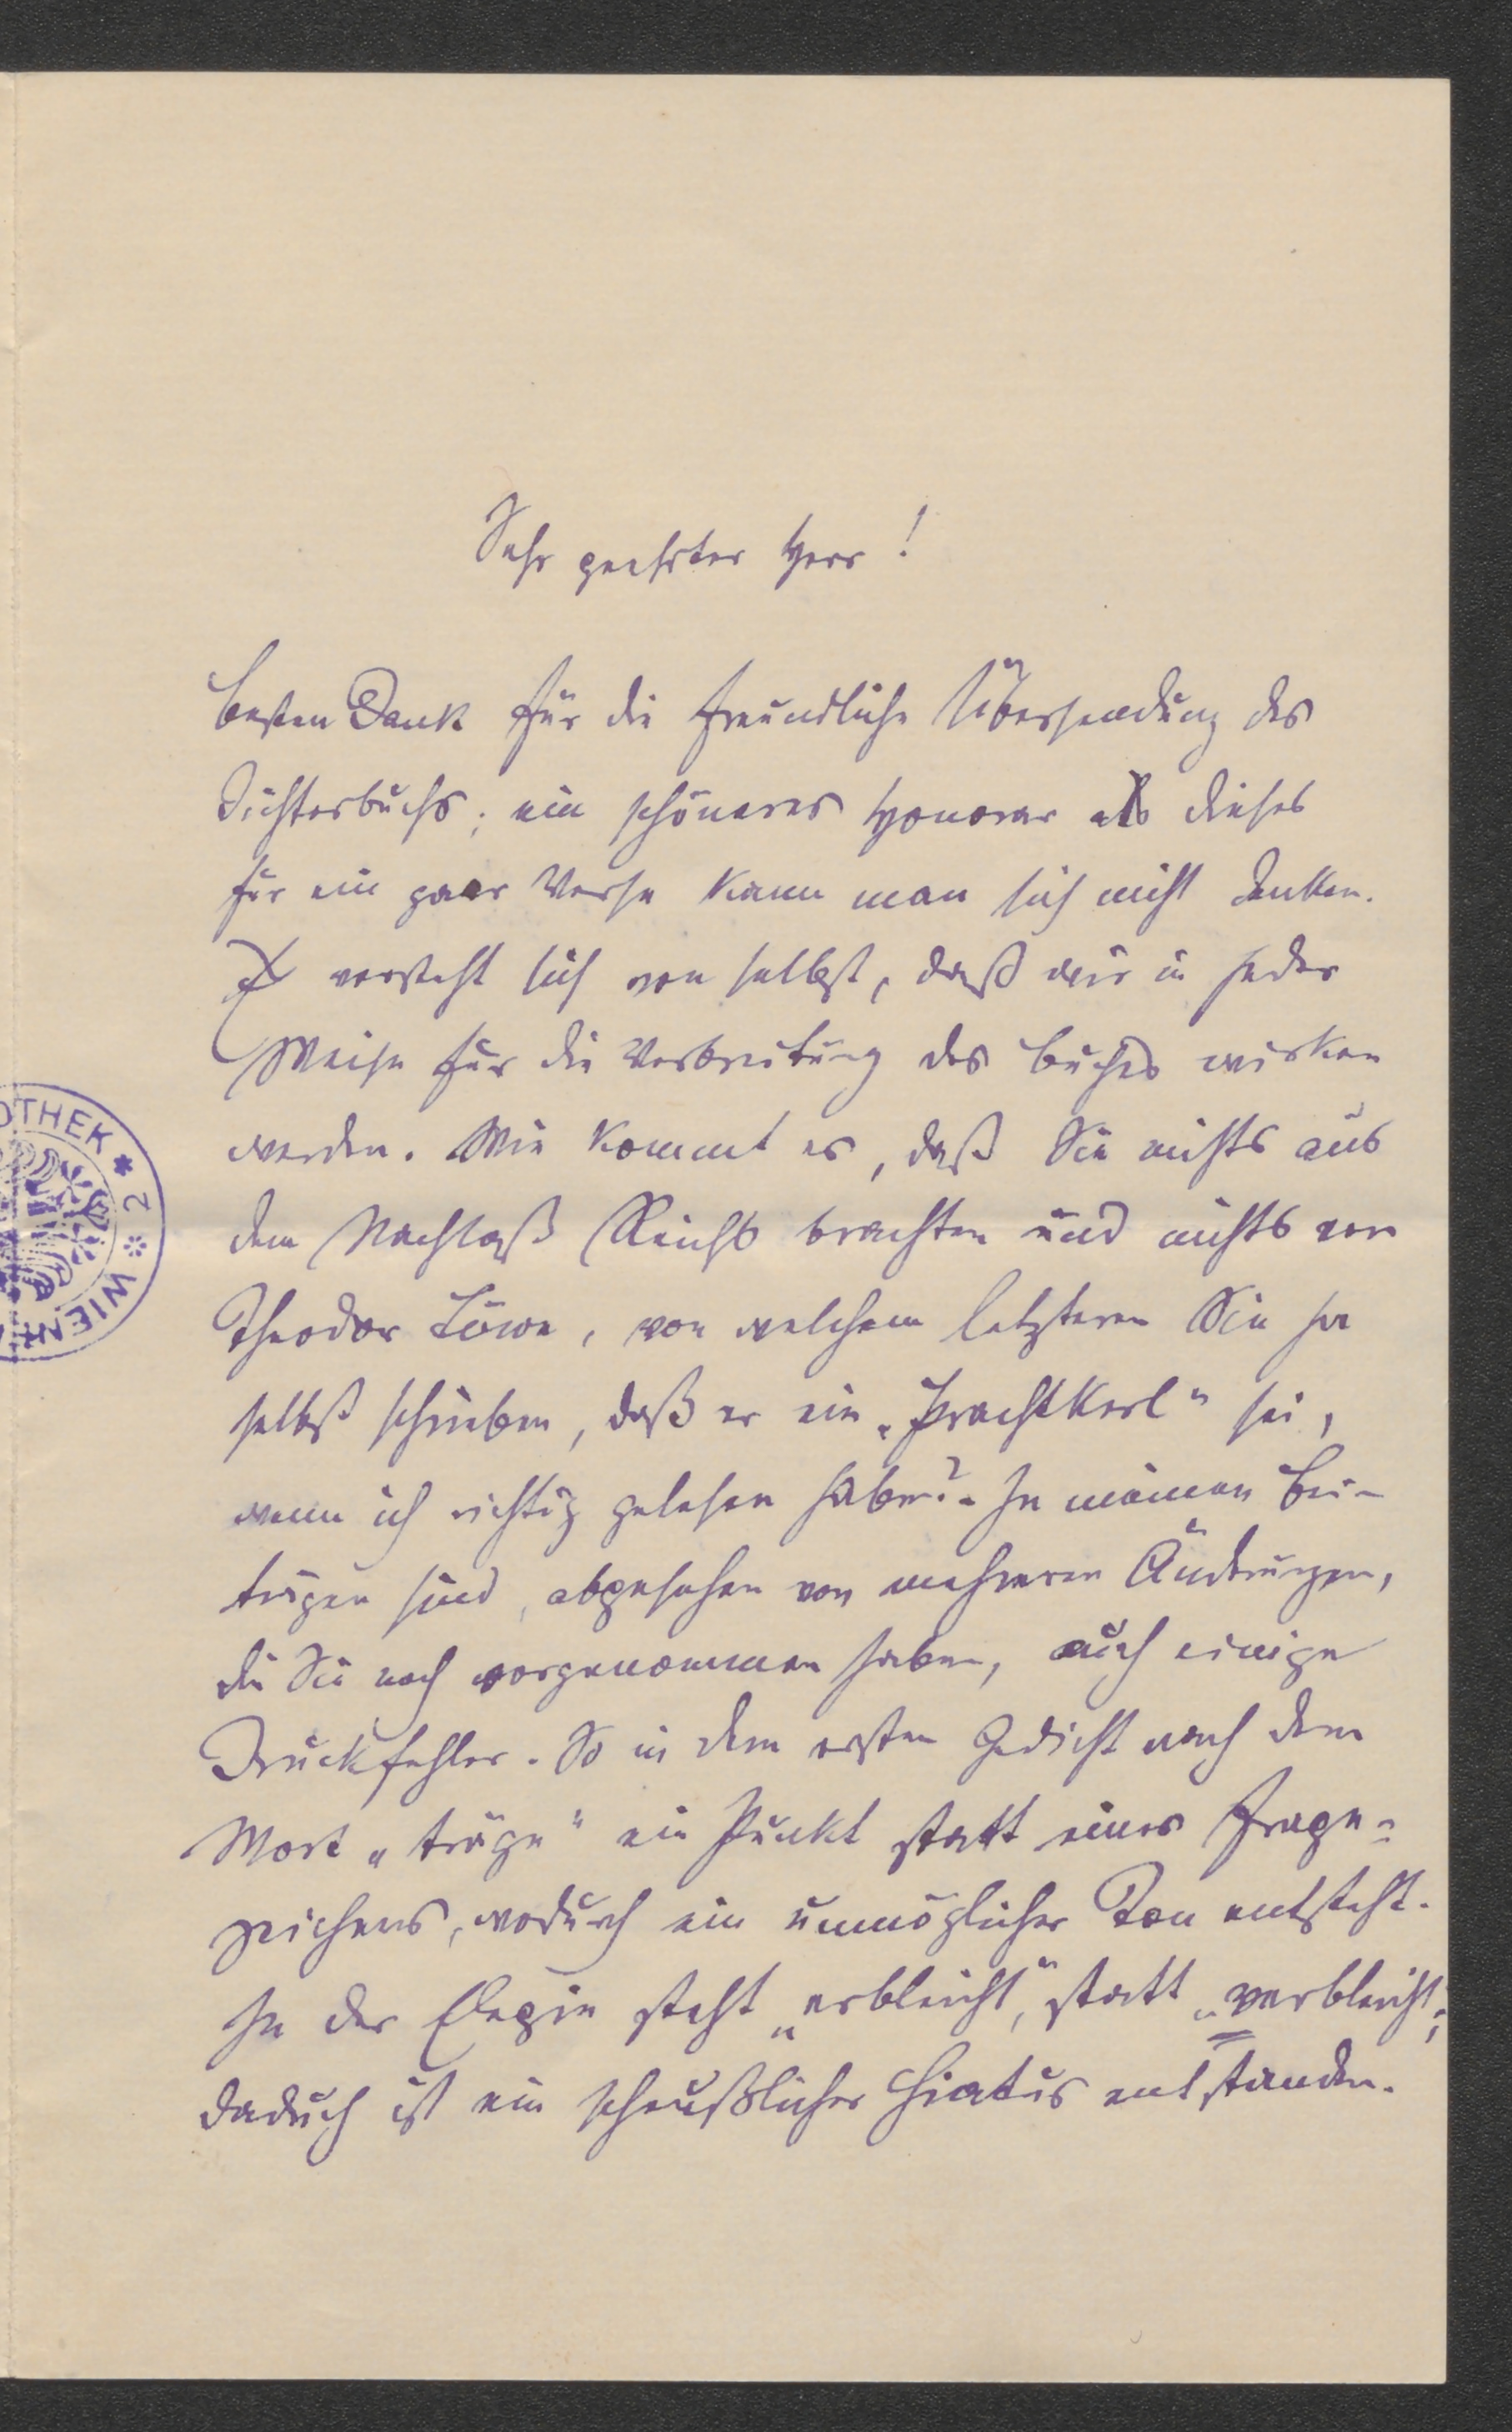 Sehr geehrter Herr!
besten Dank für die freundliche Übersendung des
Dichterbuchs; ein schöneres Honorar als dieses
für ein paar Verse kann man sich nicht denken.
Es versteht sich von selbst, daß wir in jeder
Weise für die Verbreitung des Buches wirken
werden. Wie kommt es, daß Sie nichts aus
dem Nachlaß brachten und nichts von
Theodor Löwe, von welchem letzteren Sie ja
selbst schrieben, daß er ein „Prachtkerl“ sei,
wenn ich richtig gelesen habe? - In meinen Bei-
trägen sind, abgesehen von mehreren Änderungen,
die Sie noch vorgenommen haben, auch einige
Druckfehler. So in dem ersten Gedicht nach dem
Wort „träge“ ein Punkt statt eines Frage-
zeichens, wodurch ein unmöglicher Ton entsteht.
In der Elegie steht „erbleicht“, statt „verbleicht“;
daduch ist ein scheußlicher Hiatus entstanden.
OTHEK * 2 * WIEN